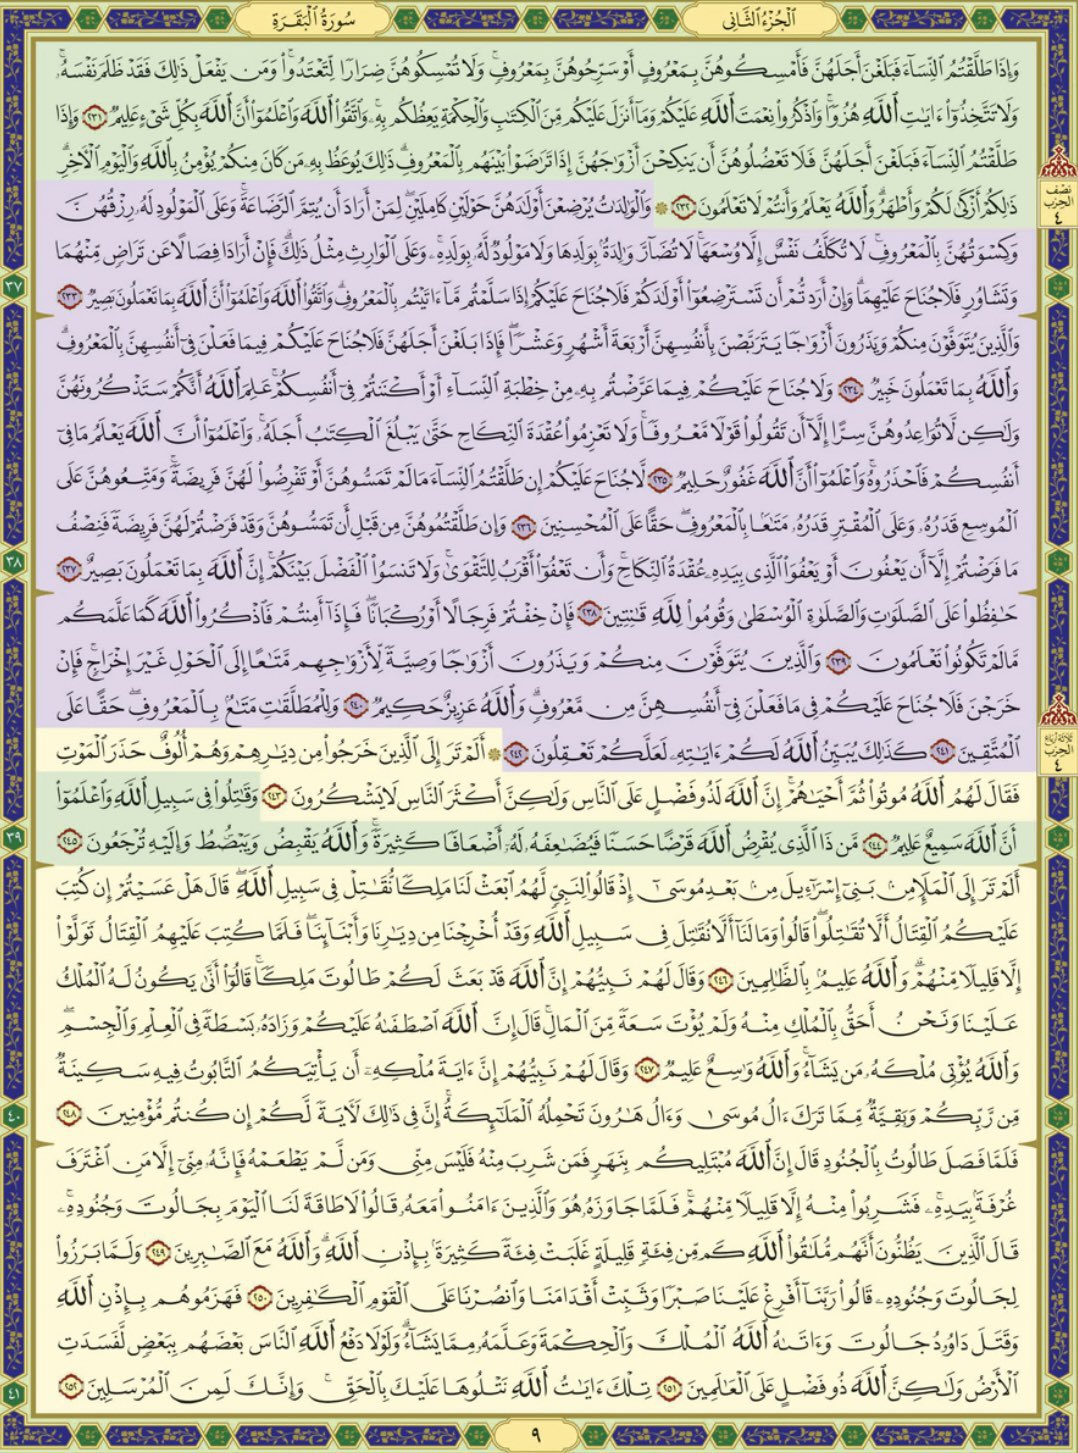 الجُزْءُ الثَّانِي
سُورَةُ البَقَرَةِ
وَإِذَا طَلَّقۡتُمُ ٱلنِّسَآءَ فَبَلَغۡنَ أَجَلَهُنَّ فَأَمۡسِكُوهُنَّ بِمَعۡرُوفٍ أَوۡ سَرِّحُوهُنَّ بِمَعۡرُوفٖۚ وَلَا تُمۡسِكُوهُنَّ ضِرَارٗا لِّتَعۡتَدُواْۚ وَمَن يَفۡعَلۡ ذَٰلِكَ فَقَدۡ ظَلَمَ نَفۡسَهُۥۚ
وَلَا تَتَّخِذُوٓاْ ءَايَٰتِ ٱللَّهِ هُزُوٗاۚ وَٱذۡكُرُواْ نِعۡمَتَ ٱللَّهِ عَلَيۡكُمۡ وَمَآ أَنزَلَ عَلَيۡكُم مِّنَ ٱلۡكِتَٰبِ وَٱلۡحِكۡمَةِ يَعِظُكُم بِهِۦۚ وَٱتَّقُواْ ٱللَّهَ وَٱعۡلَمُوٓاْ أَنَّ ٱللَّهَ بِكُلِّ شَيۡءٍ عَلِيمٞ ٢٣١ وَإِذَا
طَلَّقۡتُمُ ٱلنِّسَآءَ فَبَلَغۡنَ أَجَلَهُنَّ فَلَا تَعۡضُلُوهُنَّ أَن يَنكِحۡنَ أَزۡوَٰجَهُنَّ إِذَا تَرَٰضَوۡاْ بَيۡنَهُم بِٱلۡمَعۡرُوفِۗ ذَٰلِكَ يُوعَظُ بِهِۦ مَن كَانَ مِنكُمۡ يُؤۡمِنُ بِٱللَّهِ وَٱلۡيَوۡمِ ٱلۡأٓخِرِۗ
نصف الحزب ٤
ذَٰلِكُمۡ أَزۡكَىٰ لَكُمۡ وَأَطۡهَرُۚ وَٱللَّهُ يَعۡلَمُ وَأَنتُمۡ لَا تَعۡلَمُونَ ٢٣٢ ۞ وَٱلۡوَٰلِدَٰتُ يُرۡضِعۡنَ أَوۡلَٰدَهُنَّ حَوۡلَيۡنِ كَامِلَيۡنِۖ لِمَنۡ أَرَادَ أَن يُتِمَّ ٱلرَّضَاعَةَۚ وَعَلَى ٱلۡمَوۡلُودِ لَهُۥ رِزۡقُهُنَّ
وَكِسۡوَتُهُنَّ بِٱلۡمَعۡرُوفِۚ لَا تُكَلَّفُ نَفۡسٌ إِلَّا وُسۡعَهَاۚ لَا تُضَآرَّ وَٰلِدَةُۢ بِوَلَدِهَا وَلَا مَوۡلُودٞ لَّهُۥ بِوَلَدِهِۦۚ وَعَلَى ٱلۡوَارِثِ مِثۡلُ ذَٰلِكَۗ فَإِنۡ أَرَادَا فِصَالًا عَن تَرَاضٖ مِّنۡهُمَا
٣٧
وَتَشَاوُرٖ فَلَا جُنَاحَ عَلَيۡهِمَاۗ وَإِنۡ أَرَدتُّمۡ أَن تَسۡتَرۡضِعُوٓاْ أَوۡلَٰدَكُمۡ فَلَا جُنَاحَ عَلَيۡكُمۡ إِذَا سَلَّمۡتُم مَّآ ءَاتَيۡتُم بِٱلۡمَعۡرُوفِۗ وَٱتَّقُواْ ٱللَّهَ وَٱعۡلَمُوٓاْ أَنَّ ٱللَّهَ بِمَا تَعۡمَلُونَ بَصِيرٞ ٢٣٣
وَٱلَّذِينَ يُتَوَفَّوۡنَ مِنكُمۡ وَيَذَرُونَ أَزۡوَٰجٗا يَتَرَبَّصۡنَ بِأَنفُسِهِنَّ أَرۡبَعَةَ أَشۡهُرٖ وَعَشۡرٗاۖ فَإِذَا بَلَغۡنَ أَجَلَهُنَّ فَلَا جُنَاحَ عَلَيۡكُمۡ فِيمَا فَعَلۡنَ فِيٓ أَنفُسِهِنَّ بِٱلۡمَعۡرُوفِۗ
وَٱللَّهُ بِمَا تَعۡمَلُونَ خَبِيرٞ ٢٣٤ وَلَا جُنَاحَ عَلَيۡكُمۡ فِيمَا عَرَّضۡتُم بِهِۦ مِنۡ خِطۡبَةِ ٱلنِّسَآءِ أَوۡ أَكۡنَنتُمۡ فِيٓ أَنفُسِكُمۡۚ عَلِمَ ٱللَّهُ أَنَّكُمۡ سَتَذۡكُرُونَهُنَّ
وَلَٰكِن لَّا تُوَاعِدُوهُنَّ سِرًّا إِلَّآ أَن تَقُولُواْ قَوۡلٗا مَّعۡرُوفٗاۚ وَلَا تَعۡزِمُواْ عُقۡدَةَ ٱلنِّكَاحِ حَتَّىٰ يَبۡلُغَ ٱلۡكِتَٰبُ أَجَلَهُۥۚ وَٱعۡلَمُوٓاْ أَنَّ ٱللَّهَ يَعۡلَمُ مَا فِيٓ
أَنفُسِكُمۡ فَٱحۡذَرُوهُۚ وَٱعۡلَمُوٓاْ أَنَّ ٱللَّهَ غَفُورٌ حَلِيمٞ ٢٣٥ لَّا جُنَاحَ عَلَيۡكُمۡ إِن طَلَّقۡتُمُ ٱلنِّسَآءَ مَا لَمۡ تَمَسُّوهُنَّ أَوۡ تَفۡرِضُواْ لَهُنَّ فَرِيضَةٗۚ وَمَتِّعُوهُنَّ عَلَى
ٱلۡمُوسِعِ قَدَرُهُۥ وَعَلَى ٱلۡمُقۡتِرِ قَدَرُهُۥ مَتَٰعَۢا بِٱلۡمَعۡرُوفِۖ حَقًّا عَلَى ٱلۡمُحۡسِنِينَ ٢٣٦ وَإِن طَلَّقۡتُمُوهُنَّ مِن قَبۡلِ أَن تَمَسُّوهُنَّ وَقَدۡ فَرَضۡتُمۡ لَهُنَّ فَرِيضَةٗ فَنِصۡفُ
٣٨
مَا فَرَضۡتُمۡ إِلَّآ أَن يَعۡفُونَ أَوۡ يَعۡفُوَاْ ٱلَّذِي بِيَدِهِۦ عُقۡدَةُ ٱلنِّكَاحِۚ وَأَن تَعۡفُوٓاْ أَقۡرَبُ لِلتَّقۡوَىٰۚ وَلَا تَنسَوُاْ ٱلۡفَضۡلَ بَيۡنَكُمۡۚ إِنَّ ٱللَّهَ بِمَا تَعۡمَلُونَ بَصِيرٌ ٢٣٧
حَٰفِظُواْ عَلَى ٱلصَّلَوَٰتِ وَٱلصَّلَوٰةِ ٱلۡوُسۡطَىٰ وَقُومُواْ لِلَّهِ قَٰنِتِينَ ٢٣٨ فَإِنۡ خِفۡتُمۡ فَرِجَالًا أَوۡ رُكۡبَانٗاۖ فَإِذَآ أَمِنتُمۡ فَٱذۡكُرُواْ ٱللَّهَ كَمَا عَلَّمَكُم
مَّا لَمۡ تَكُونُواْ تَعۡلَمُونَ ٢٣٩ وَٱلَّذِينَ يُتَوَفَّوۡنَ مِنكُمۡ وَيَذَرُونَ أَزۡوَٰجٗا وَصِيَّةٗ لِّأَزۡوَٰجِهِم مَّتَٰعًا إِلَى ٱلۡحَوۡلِ غَيۡرَ إِخۡرَاجٖۚ فَإِنۡ
خَرَجۡنَ فَلَا جُنَاحَ عَلَيۡكُمۡ فِي مَا فَعَلۡنَ فِيٓ أَنفُسِهِنَّ مِن مَّعۡرُوفٖۗ وَٱللَّهُ عَزِيزٌ حَكِيمٞ ٢٤٠ وَلِلۡمُطَلَّقَٰتِ مَتَٰعُۢ بِٱلۡمَعۡرُوفِۖ حَقًّا عَلَى
ثلاثة أرباع الحزب ٤
ٱلۡمُتَّقِينَ ٢٤١ كَذَٰلِكَ يُبَيِّنُ ٱللَّهُ لَكُمۡ ءَايَٰتِهِۦ لَعَلَّكُمۡ تَعۡقِلُونَ ٢٤٢ ۞ أَلَمۡ تَرَ إِلَى ٱلَّذِينَ خَرَجُواْ مِن دِيَٰرِهِمۡ وَهُمۡ أُلُوفٌ حَذَرَ ٱلۡمَوۡتِ
فَقَالَ لَهُمُ ٱللَّهُ مُوتُواْ ثُمَّ أَحۡيَٰهُمۡۚ إِنَّ ٱللَّهَ لَذُو فَضۡلٍ عَلَى ٱلنَّاسِ وَلَٰكِنَّ أَكۡثَرَ ٱلنَّاسِ لَا يَشۡكُرُونَ ٢٤٣ وَقَٰتِلُواْ فِي سَبِيلِ ٱللَّهِ وَٱعۡلَمُوٓاْ
٣٩
أَنَّ ٱللَّهَ سَمِيعٌ عَلِيمٞ ٢٤٤ مَّن ذَا ٱلَّذِي يُقۡرِضُ ٱللَّهَ قَرۡضًا حَسَنٗا فَيُضَٰعِفَهُۥ لَهُۥٓ أَضۡعَافٗا كَثِيرَةٗۚ وَٱللَّهُ يَقۡبِضُ وَيَبۡصُۜطُ وَإِلَيۡهِ تُرۡجَعُونَ ٢٤٥
أَلَمۡ تَرَ إِلَى ٱلۡمَلَإِ مِنۢ بَنِيٓ إِسۡرَٰٓءِيلَ مِنۢ بَعۡدِ مُوسَىٰٓ إِذۡ قَالُواْ لِنَبِيّٖ لَّهُمُ ٱبۡعَثۡ لَنَا مَلِكٗا نُّقَٰتِلۡ فِي سَبِيلِ ٱللَّهِۖ قَالَ هَلۡ عَسَيۡتُمۡ إِن كُتِبَ
عَلَيۡكُمُ ٱلۡقِتَالُ أَلَّا تُقَٰتِلُواْۖ قَالُواْ وَمَا لَنَآ أَلَّا نُقَٰتِلَ فِي سَبِيلِ ٱللَّهِ وَقَدۡ أُخۡرِجۡنَا مِن دِيَٰرِنَا وَأَبۡنَآئِنَاۖ فَلَمَّا كُتِبَ عَلَيۡهِمُ ٱلۡقِتَالُ تَوَلَّوۡاْ
إِلَّا قَلِيلٗا مِّنۡهُمۡۚ وَٱللَّهُ عَلِيمُۢ بِٱلظَّٰلِمِينَ ٢٤٦ وَقَالَ لَهُمۡ نَبِيُّهُمۡ إِنَّ ٱللَّهَ قَدۡ بَعَثَ لَكُمۡ طَالُوتَ مَلِكٗاۚ قَالُوٓاْ أَنَّىٰ يَكُونُ لَهُ ٱلۡمُلۡكُ
عَلَيۡنَا وَنَحۡنُ أَحَقُّ بِٱلۡمُلۡكِ مِنۡهُ وَلَمۡ يُؤۡتَ سَعَةٗ مِّنَ ٱلۡمَالِۚ قَالَ إِنَّ ٱللَّهَ ٱصۡطَفَىٰهُ عَلَيۡكُمۡ وَزَادَهُۥ بَسۡطَةٗ فِي ٱلۡعِلۡمِ وَٱلۡجِسۡمِۖ
وَٱللَّهُ يُؤۡتِي مُلۡكَهُۥ مَن يَشَآءُۚ وَٱللَّهُ وَٰسِعٌ عَلِيمٞ ٢٤٧ وَقَالَ لَهُمۡ نَبِيُّهُمۡ إِنَّ ءَايَةَ مُلۡكِهِۦٓ أَن يَأۡتِيَكُمُ ٱلتَّابُوتُ فِيهِ سَكِينَةٞ
٤٠
مِّن رَّبِّكُمۡ وَبَقِيَّةٞ مِّمَّا تَرَكَ ءَالُ مُوسَىٰ وَءَالُ هَٰرُونَ تَحۡمِلُهُ ٱلۡمَلَٰٓئِكَةُۚ إِنَّ فِي ذَٰلِكَ لَأٓيَةٗ لَّكُمۡ إِن كُنتُم مُّؤۡمِنِينَ ٢٤٨
فَلَمَّا فَصَلَ طَالُوتُ بِٱلۡجُنُودِ قَالَ إِنَّ ٱللَّهَ مُبۡتَلِيكُم بِنَهَرٖ فَمَن شَرِبَ مِنۡهُ فَلَيۡسَ مِنِّي وَمَن لَّمۡ يَطۡعَمۡهُ فَإِنَّهُۥ مِنِّيٓ إِلَّا مَنِ ٱغۡتَرَفَ
غُرۡفَةَۢ بِيَدِهِۦۚ فَشَرِبُواْ مِنۡهُ إِلَّا قَلِيلٗا مِّنۡهُمۡۚ فَلَمَّا جَاوَزَهُۥ هُوَ وَٱلَّذِينَ ءَامَنُواْ مَعَهُۥ قَالُواْ لَا طَاقَةَ لَنَا ٱلۡيَوۡمَ بِجَالُوتَ وَجُنُودِهِۦۚ
قَالَ ٱلَّذِينَ يَظُنُّونَ أَنَّهُم مُّلَٰقُواْ ٱللَّهِ كَم مِّن فِئَةٖ قَلِيلَةٍ غَلَبَتۡ فِئَةٗ كَثِيرَةَۢ بِإِذۡنِ ٱللَّهِۗ وَٱللَّهُ مَعَ ٱلصَّٰبِرِينَ ٢٤٩ وَلَمَّا بَرَزُواْ
لِجَالُوتَ وَجُنُودِهِۦ قَالُواْ رَبَّنَآ أَفۡرِغۡ عَلَيۡنَا صَبۡرٗا وَثَبِّتۡ أَقۡدَامَنَا وَٱنصُرۡنَا عَلَى ٱلۡقَوۡمِ ٱلۡكَٰفِرِينَ ٢٥٠ فَهَزَمُوهُم بِإِذۡنِ ٱللَّهِ
وَقَتَلَ دَاوُۥدُ جَالُوتَ وَءَاتَىٰهُ ٱللَّهُ ٱلۡمُلۡكَ وَٱلۡحِكۡمَةَ وَعَلَّمَهُۥ مِمَّا يَشَآءُۗ وَلَوۡلَا دَفۡعُ ٱللَّهِ ٱلنَّاسَ بَعۡضَهُم بِبَعۡضٖ لَّفَسَدَتِ
٤١
ٱلۡأَرۡضُ وَلَٰكِنَّ ٱللَّهَ ذُو فَضۡلٍ عَلَى ٱلۡعَٰلَمِينَ ٢٥١ تِلۡكَ ءَايَٰتُ ٱللَّهِ نَتۡلُوهَا عَلَيۡكَ بِٱلۡحَقِّۚ وَإِنَّكَ لَمِنَ ٱلۡمُرۡسَلِينَ ٢٥٢
٩